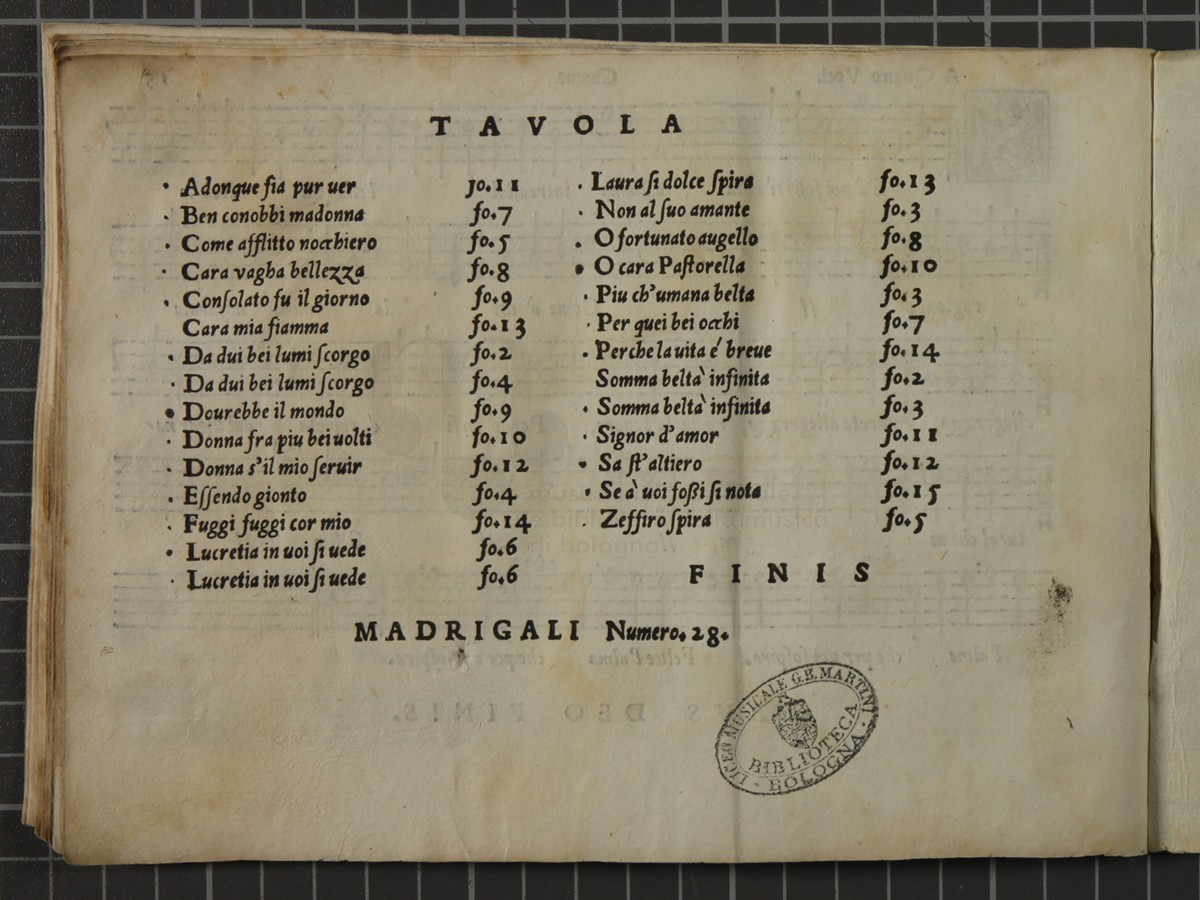 TAVOLA
Adonque ſia pur uer fo.11
Ben conobbi madonna fo.7
Come afflitto nocchiero fo.5
Cara vagha bellezza fo.8
Conſolato fu il giorno fo.9
Cara mia fiamma fo.13
Da dui bei lumi ſcorgo fo.2
Da dui bei lumi ſcorgo fo.4
Dourebbe il mondo fo.9
Donna fra piu bei uolti fo.10
Donna s'il mio ſeruir fo.12
Eſſendo gionto fo.4
Fuggi fuggi cor mio fo.14
Lucretia in uoi ſi uede fo.6
Lucretia in uoi ſi uede fo.6
Laura ſi dolce ſpira fo.13
Non al ſuo amante fo.3
O fortunato augello fo.8
O cara Paſtorella fo.10
Piu ch'umana belta fo.3
Per quei bei occhi fo.7
Perche la uita é breue fo.14
Somma beltà infinita fo.2
Somma beltà infinita fo.3
Signor d'amor fo.11
Sa ſt'altiero fo.12
Se à uoi foßi ſi nota fo.15
Zeffiro ſpira fo.5
FINIS
MADRIGALI Numero.28.
LICEO MUSICALE G.B. MARTINI
BIBLIOTECA
BOLOGNA